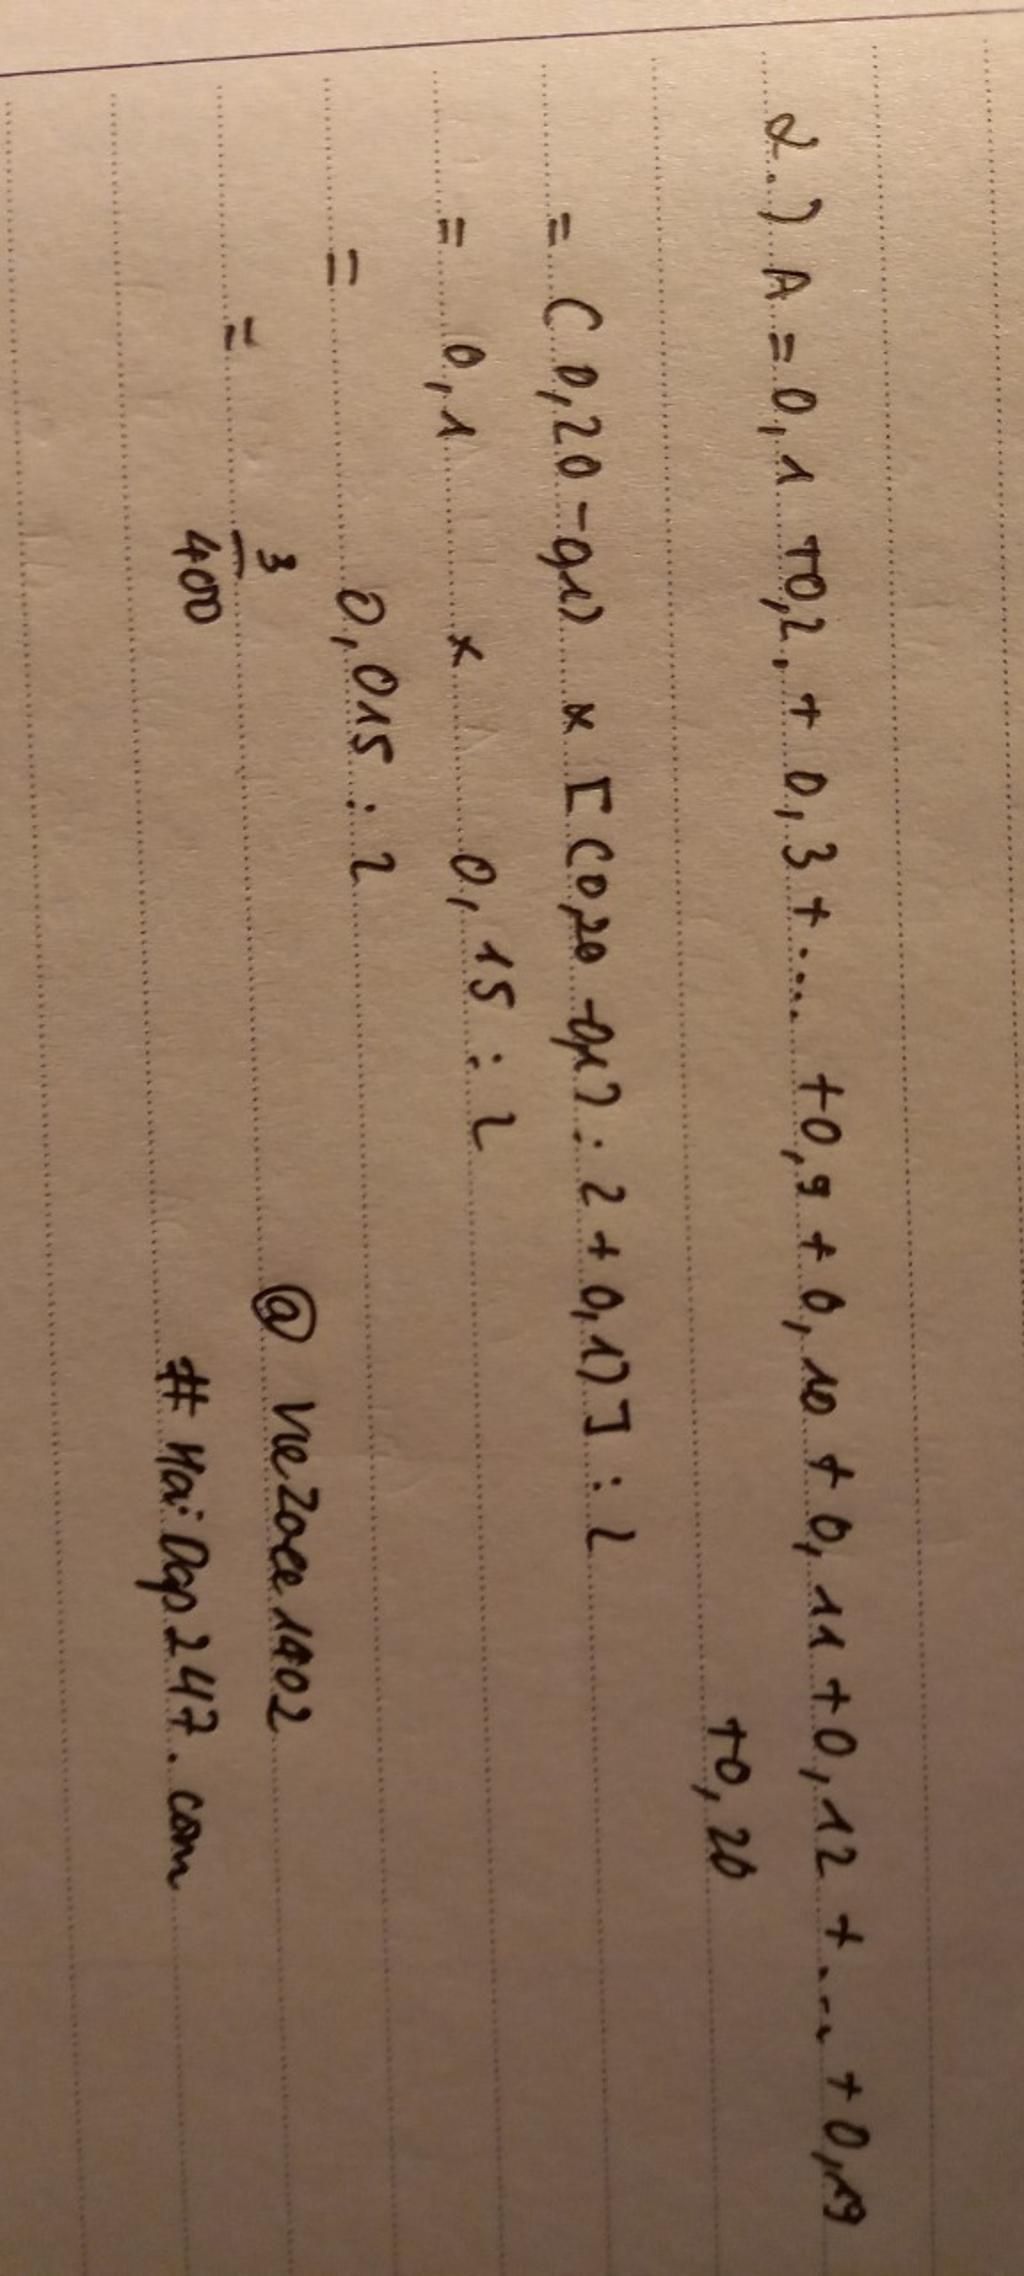 2.) A = 0,1 +0,2, + 0,3 + .... +0,9 + 0,10 + 0,11 + 0,12 + .... + 0,19
+0,20
= (0,20 - 0,1) x [(0,20 - 0,1) : 2 + 0,1)] : 2
= 0,1 x 0,15 : 2
= 0,015 : 2
= 3/400
#HoiDap247.com